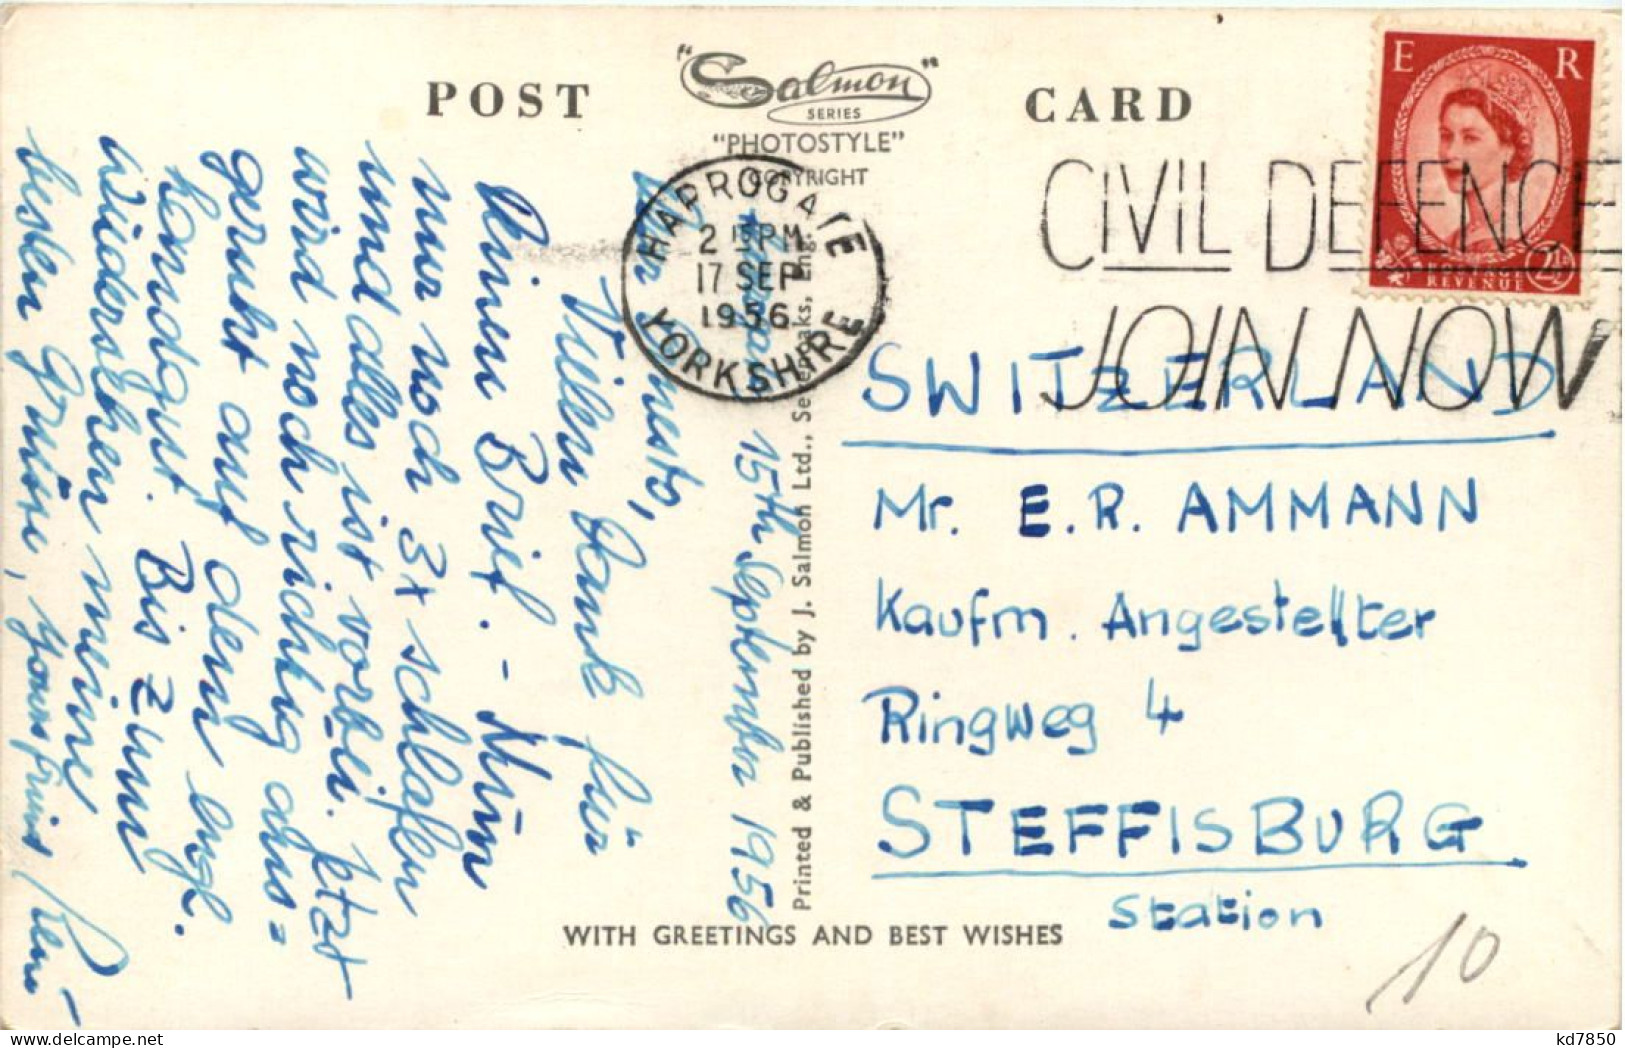 POST CARD
"Salmon"
SERIES
"PHOTOSTYLE"
COPYRIGHT
HARROGATE
2 15 PM
17 SEP
1956
YORKSHIRE
CIVIL DEFENCE
JOIN NOW
E R
REVENUE
2½
15th September 1956
Ernesto,
Vielen Dank für
Deinen Brief. - Nun
nur noch 3x schlafen
und alles ist vorbei. Jetzt
wird noch richtig aus=
geruht auf dem engl.
Landgut. Bis zum
Wiedersehen meine
besten Grüsse,
Printed & Published by J. Salmon Ltd., Sevenoaks, Eng.
SWITZERLAND
Mr. E. R. AMMANN
Kaufm. Angestellter
Ringweg 4
STEFFISBURG
Station
WITH GREETINGS AND BEST WISHES
10
kd7850